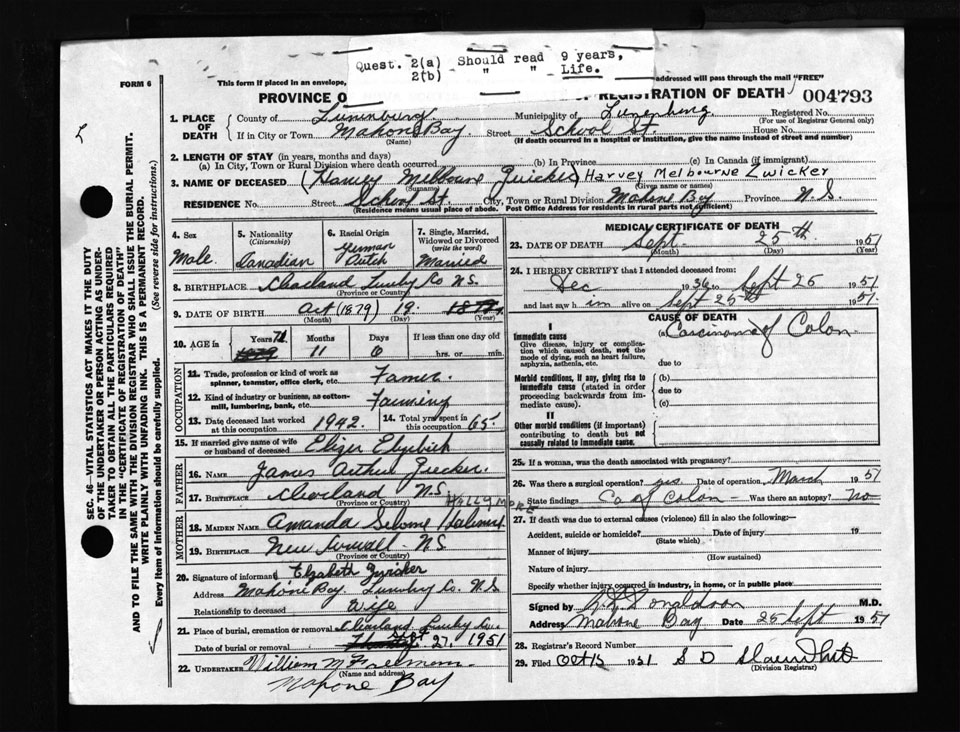 Quest. 2(a) Should read 9 years,
2(b) " " Life.
FORM 6
This form if placed in an envelope,
addressed will pass through the mail "FREE"
PROVINCE O
OF REGISTRATION OF DEATH
004793
1. PLACE OF DEATH
County of Luninburg
Municipality of Lunenburg
Registered No.
(For use of Registrar General only)
If in City or Town Mahone Bay Street School St. House No.
(Name)
(If death occurred in a hospital or institution, give the name instead of street and number)
2. LENGTH OF STAY (in years, months and days)
(a) In City, Town or Rural Division where death occurred (b) In Province (c) In Canada (if immigrant)
3. NAME OF DECEASED (Harvey Melbourne Zwicker) Harvey Melbourne Zwicker
(Surname) (Given name or names)
RESIDENCE No. Street School St. City, Town or Rural Division Mahone Bay Province N.S.
(Residence means usual place of abode. Post Office Address for residents in rural parts not sufficient)
4. Sex
Male
5. Nationality
(Citizenship)
Canadian
6. Racial Origin
7. Single, Married, Widowed or Divorced
(write the word)
Married
8. BIRTHPLACE
Co N.S.
(Province or Country)
9. DATE OF BIRTH Oct (1879) 19
(Month) (Day) (Year)
10. AGE in
Years 71
Months 11
Days 6
If less than one day old
hrs. or min.
OCCUPATION
11. Trade, profession or kind of work as spinner, teamster, office clerk, etc. Famer
12. Kind of industry or business, as cotton-mill, lumbering, bank, etc. Farming
13. Date deceased last worked at this occupation 1942.
14. Total yrs spent in this occupation 65
15. If married give name of wife or husband of deceased
FATHER
16. NAME James Arthur Zwicker.
17. BIRTHPLACE N.S.
(Province or Country)
MOTHER
18. MAIDEN NAME Amanda
19. BIRTHPLACE New Cornwall N.S.
(Province or Country)
20. Signature of informant Elizabeth Zwicker
Address Mahone Bay. Co. N.S
Relationship to deceased Wife
21. Place of burial, cremation or removal
Date of burial or removal Sept 27, 1951
22. UNDERTAKER William M Freemom.
(Name and address)
Mahone Bay
MEDICAL CERTIFICATE OF DEATH
23. DATE OF DEATH Sept. 25th 1951
(Month) (Day) (Year)
24. I HEREBY CERTIFY that I attended deceased from:
Dec 1936 to Sept 25 1951
and last saw him alive on Sept 25th 1951.
CAUSE OF DEATH
I
Immediate cause
Give disease, injury or complication which caused death, not the mode of dying, such as heart failure, asphyxia, asthenia, etc.
(a) Carcinoma of Colon
due to
Morbid conditions, if any, giving rise to immediate cause (stated in order proceeding backwards from immediate cause).
(b)
due to
(c)
II
Other morbid conditions (if important) contributing to death but not causally related to immediate cause.
25. If a woman, was the death associated with pregnancy?
26. Was there a surgical operation? yes Date of operation March 1951
State findings Ca of Colon - Was there an autopsy? No
27. If death was due to external causes (violence) fill in also the following:—
Accident, suicide or homicide? Date of injury 19
(State which)
Manner of injury
(How sustained)
Nature of injury
Specify whether injury occurred in industry, in home, or in public place
Signed by Donaldson M.D.
Address Mahone Bay Date 25 Sept 1951
28. Registrar's Record Number
29. Filed Oct 15 1951 S D
(Division Registrar)
SEC. 46—VITAL STATISTICS ACT MAKES IT THE DUTY
OF THE UNDERTAKER OR PERSON ACTING AS UNDER-
TAKER TO OBTAIN ALL THE PARTICULARS REQUIRED
IN THE "CERTIFICATE OF REGISTRATION OF DEATH"
AND TO FILE THE SAME WITH THE DIVISION REGISTRAR WHO SHALL ISSUE THE BURIAL PERMIT.
WRITE PLAINLY WITH UNFADING INK. THIS IS A PERMANENT RECORD.
Every item of information should be carefully supplied. (See reverse side for instructions.)